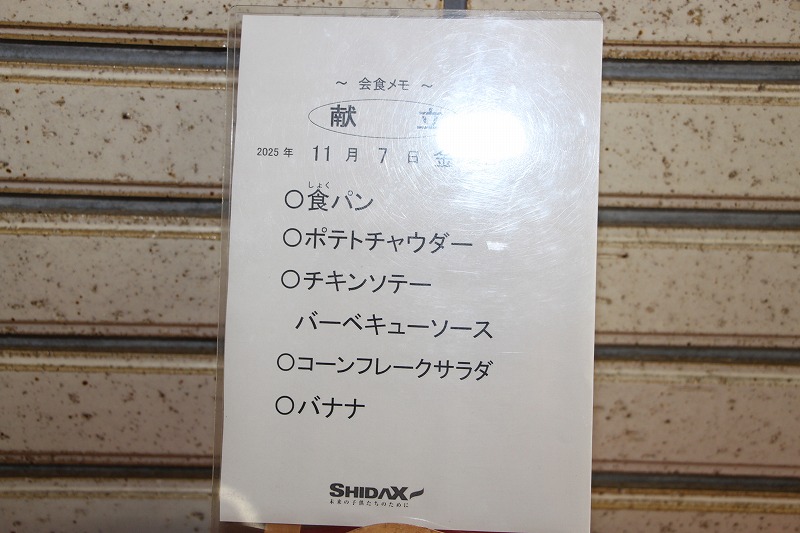 ～ 会食メモ ～
献 立
2025 年 11 月 7 日 金
しょく
○食パン
○ポテトチャウダー
○チキンソテー
バーベキューソース
○コーンフレークサラダ
○バナナ
SHIDAX
未来の子供たちのために